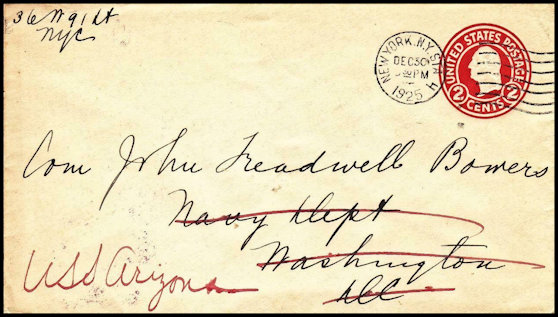 36 W 91 St
NYC
NEW YORK, N.Y. STA. H
DEC 30
PM
1925
UNITED STATES POSTAGE
2 CENTS 2
Com John Treadwell Bowers
Navy Dept
Washington
DC
USS Arizona